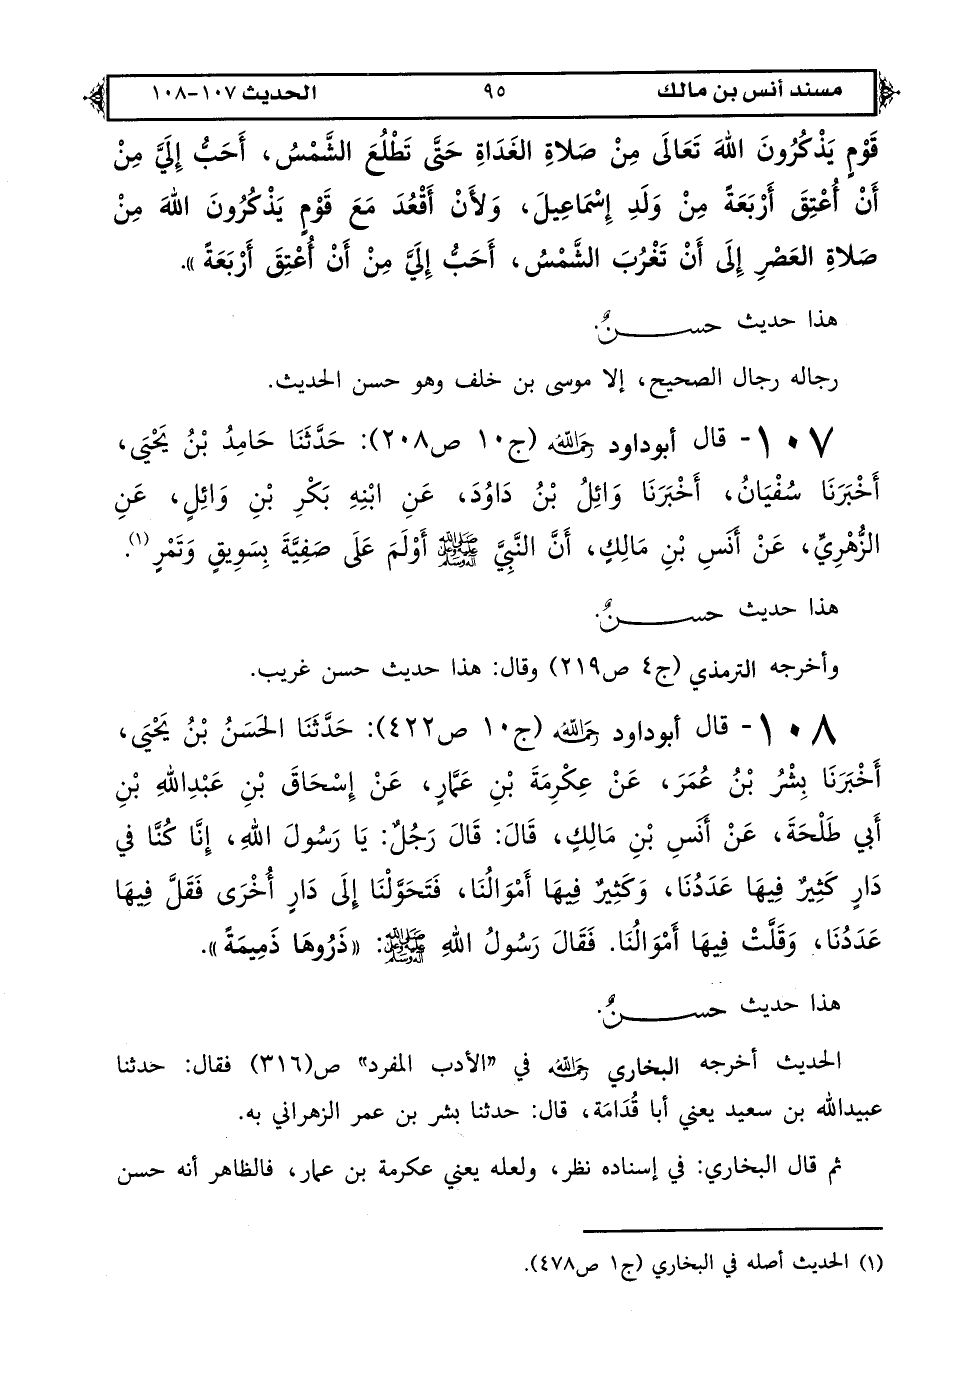 مسند أنس بن مالك ٩٥ الحديث ١٠٧-١٠٨
قَوْمٍ يَذْكُرُونَ اللهَ تَعَالَى مِنْ صَلَاةِ الغَدَاةِ حَتَّى تَطْلُعَ الشَّمْسُ، أَحَبُّ إِلَيَّ مِنْ
أَنْ أُعْتِقَ أَرْبَعَةً مِنْ وَلَدِ إِسْمَاعِيلَ، وَلأَنْ أَقْعُدَ مَعَ قَوْمٍ يَذْكُرُونَ اللهَ مِنْ
صَلَاةِ العَصْرِ إِلَى أَنْ تَغْرُبَ الشَّمْسُ، أَحَبُّ إِلَيَّ مِنْ أَنْ أُعْتِقَ أَرْبَعَةً».
هذا حديث حســـــنٌ.
رجاله رجال الصحيح، إلا موسى بن خلف وهو حسن الحديث.
١٠٧- قال أبوداود رحمه الله (ج١٠ ص٢٠٨): حَدَّثَنَا حَامِدُ بْنُ يَحْيَى،
أَخْبَرَنَا سُفْيَانُ، أَخْبَرَنَا وَائِلُ بْنُ دَاوُدَ، عَنِ ابْنِهِ بَكْرِ بْنِ وَائِلٍ، عَنِ
الزُّهْرِيِّ، عَنْ أَنَسِ بْنِ مَالِكٍ، أَنَّ النَّبِيَّ ﷺ أَوْلَمَ عَلَى صَفِيَّةَ بِسَوِيقٍ وَتَمْرٍ (١).
هذا حديث حســـــنٌ.
وأخرجه الترمذي (ج٤ ص٢١٩) وقال: هذا حديث حسن غريب.
١٠٨- قال أبوداود رحمه الله (ج١٠ ص٤٢٢): حَدَّثَنَا الحَسَنُ بْنُ يَحْيَى،
أَخْبَرَنَا بِشْرُ بْنُ عُمَرَ، عَنْ عِكْرِمَةَ بْنِ عَمَّارٍ، عَنْ إِسْحَاقَ بْنِ عَبْدِاللهِ بْنِ
أَبِي طَلْحَةَ، عَنْ أَنَسِ بْنِ مَالِكٍ، قَالَ: قَالَ رَجُلٌ: يَا رَسُولَ اللهِ، إِنَّا كُنَّا فِي
دَارٍ كَثِيرٌ فِيهَا عَدَدُنَا، وَكَثِيرٌ فِيهَا أَمْوَالُنَا، فَتَحَوَّلْنَا إِلَى دَارٍ أُخْرَى فَقَلَّ فِيهَا
عَدَدُنَا، وَقَلَّتْ فِيهَا أَمْوَالُنَا. فَقَالَ رَسُولُ اللهِ ﷺ: «ذَرُوهَا ذَمِيمَةً».
هذا حديث حســـــنٌ.
الحديث أخرجه البخاري رحمه الله في "الأدب المفرد" ص(٣١٦) فقال: حدثنا
عبيدالله بن سعيد يعني أبا قُدَامَة، قال: حدثنا بشر بن عمر الزهراني به.
ثم قال البخاري: في إسناده نظر، ولعله يعني عكرمة بن عمار، فالظاهر أنه حسن
(١) الحديث أصله في البخاري (ج١ ص٤٧٨).